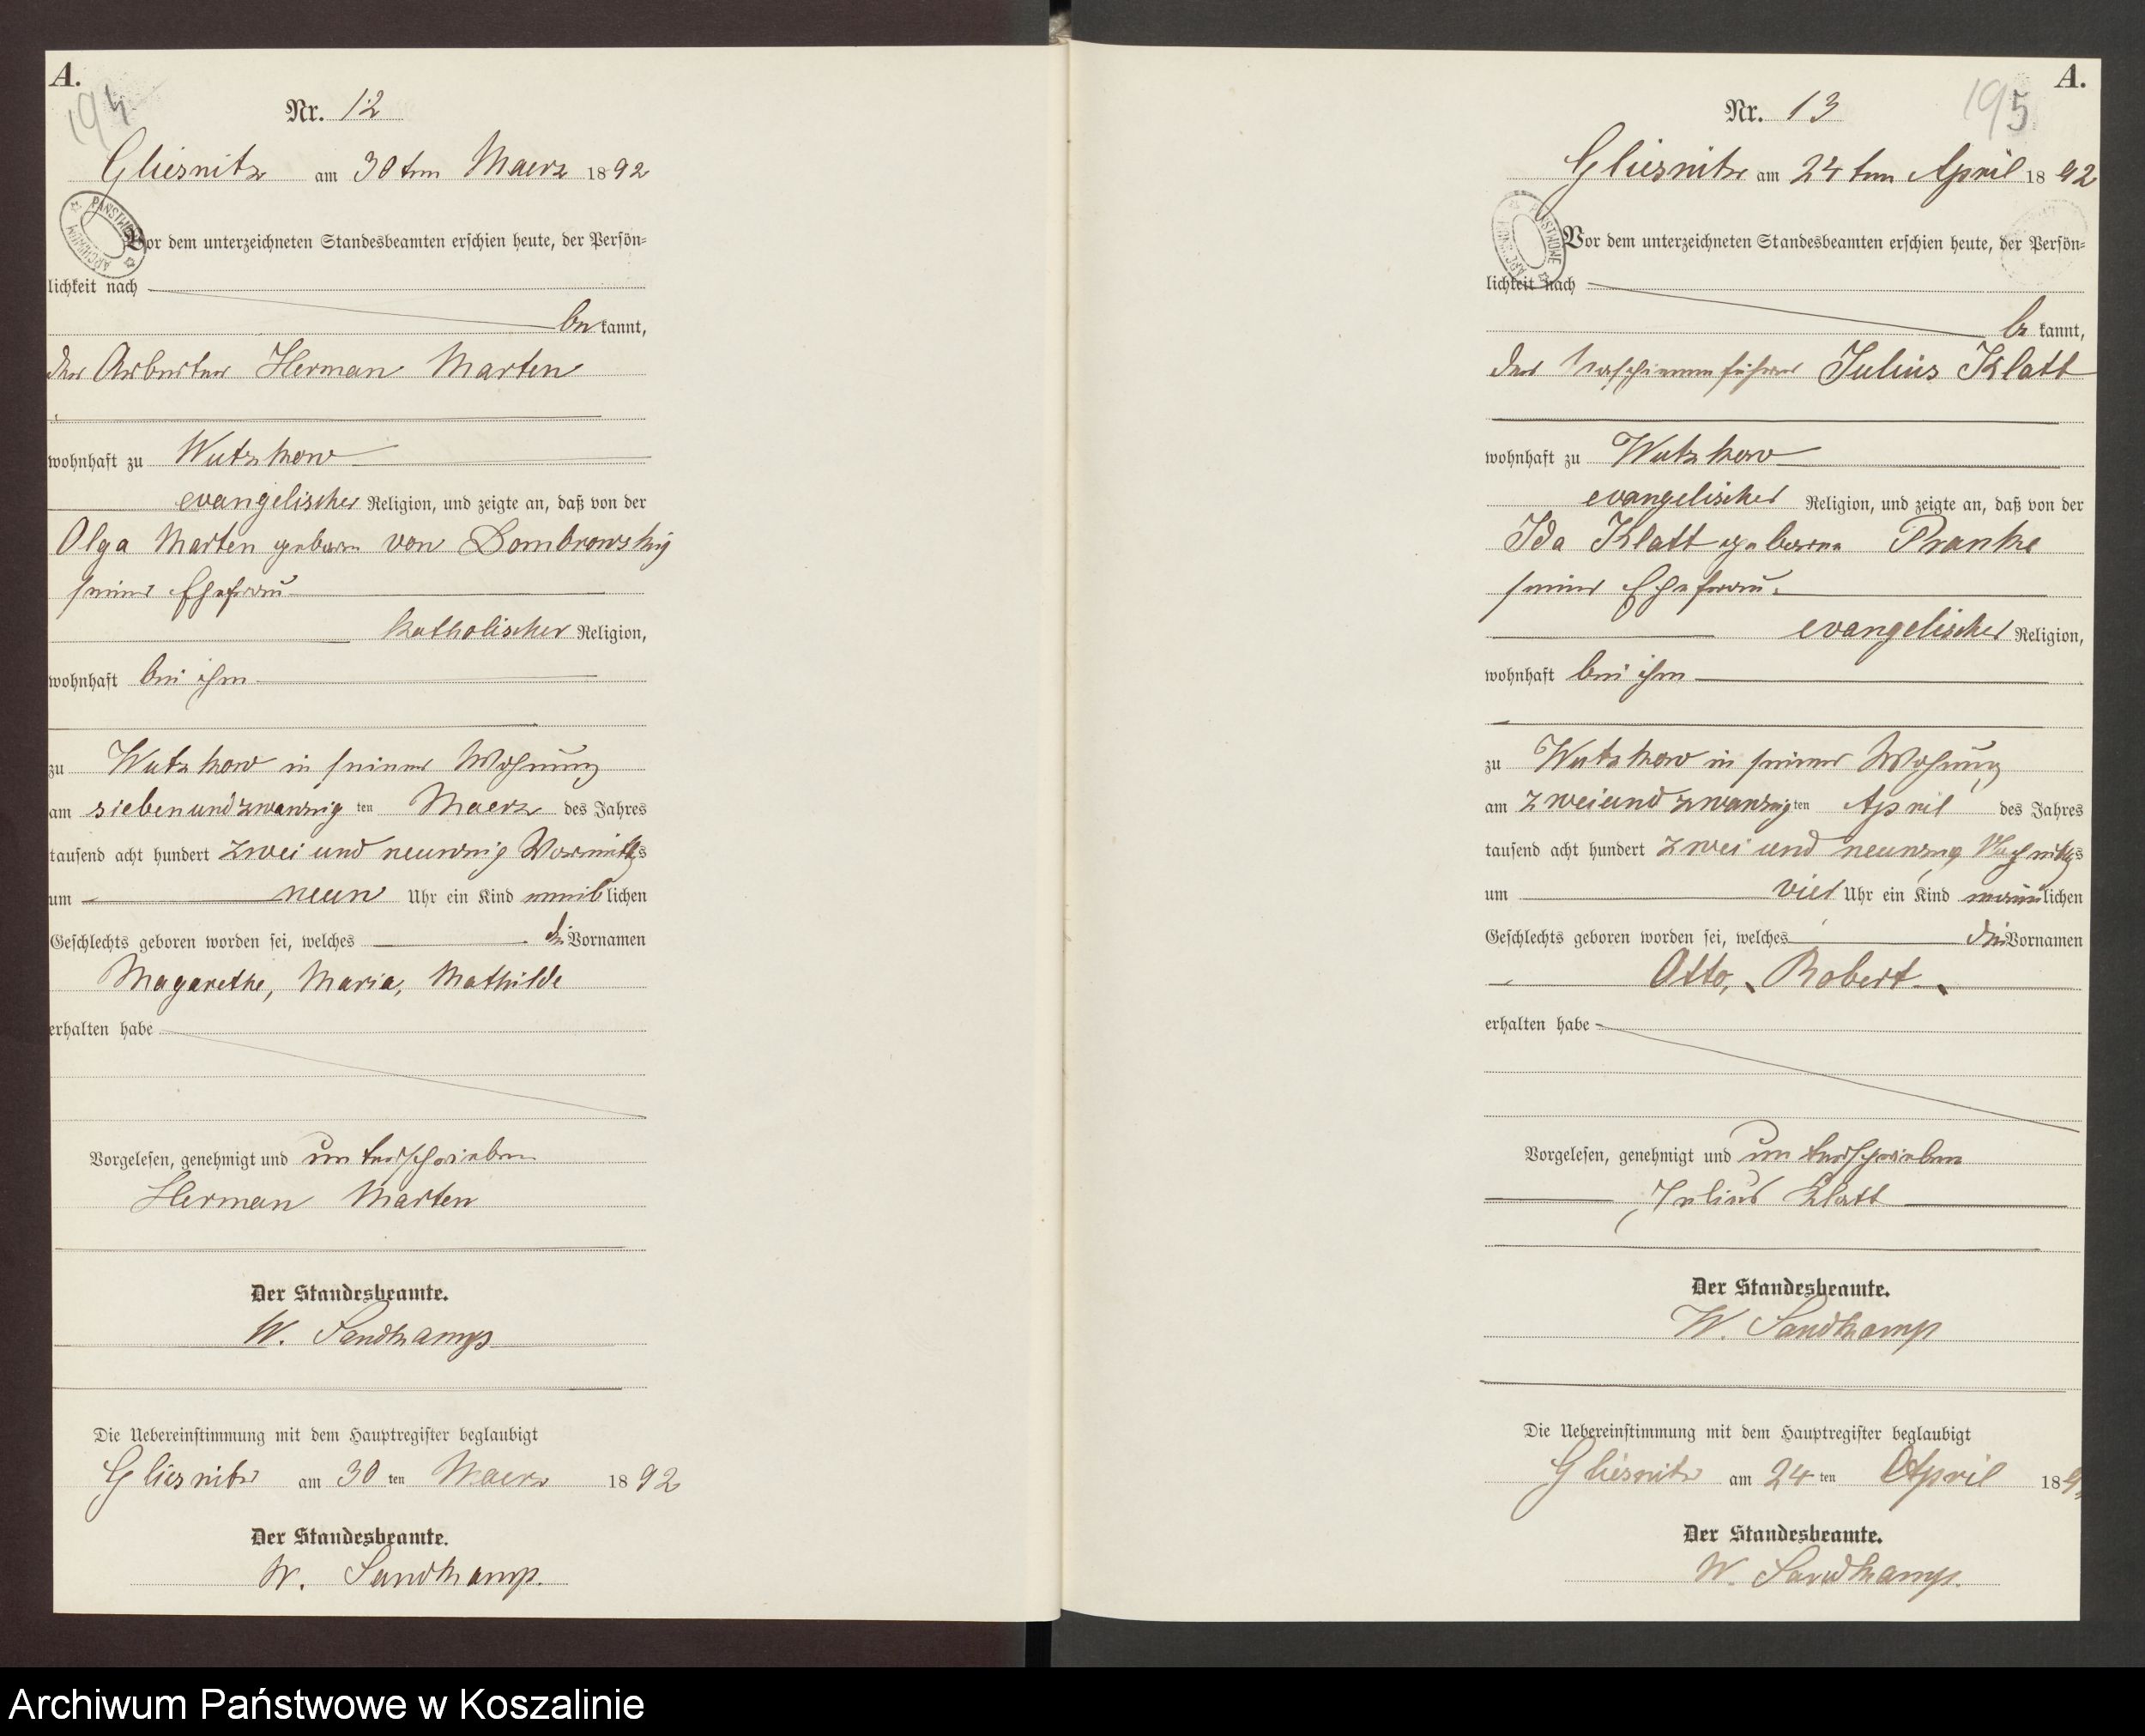 A.
194
Nr. 12
Gliesnitz am 30ten Maerz 1892
PAŃSTWOWE ARCHIWUM
Vor dem unterzeichneten Standesbeamten erschien heute, der Persön=
lichkeit nach
be kannt,
der Arbeiter Herman Marten
wohnhaft zu Wutzkow
evangelischer Religion, und zeigte an, daß von der
Olga Marten geboren von Dombrowsky
seiner Ehefrau
katholischer Religion,
wohnhaft bei ihm
zu Wutzkow in seiner Wohnung
am siebenundzwanzig ten Maerz des Jahres
tausend acht hundert zwei und neunzig Vormittgs
um neun Uhr ein Kind weiblichen
Geschlechts geboren worden sei, welches die Vornamen
Magarethe, Maria, Mathilde
erhalten habe
Vorgelesen, genehmigt und unterschrieben
Herman Marten
Der Standesbeamte.
W. Sandkamp
Die Uebereinstimmung mit dem Hauptregister beglaubigt
Gliesnitz am 30 ten Maerz 1892
Der Standesbeamte.
W. Sandkamp.
A.
195
Nr. 13
Gliesnitz am 24ten April 1892
PAŃSTWOWE ARCHIWUM
Vor dem unterzeichneten Standesbeamten erschien heute, der Persön=
lichkeit nach
be kannt,
der Maschinenführer Julius Klatt
wohnhaft zu Wutzkow
evangelischer Religion, und zeigte an, daß von der
Ida Klatt geborene Pranke
seiner Ehefrau
evangelischer Religion,
wohnhaft bei ihm
zu Wutzkow in seiner Wohnung
am zweiundzwanzigten April des Jahres
tausend acht hundert zwei und neunzig Nachmittgs
um vier Uhr ein Kind männlichen
Geschlechts geboren worden sei, welches die Vornamen
Otto, Robert
erhalten habe
Vorgelesen, genehmigt und unterschrieben
Julius Klatt
Der Standesbeamte.
W. Sandkamp
Die Uebereinstimmung mit dem Hauptregister beglaubigt
Gliesnitz am 24 ten April 189
Der Standesbeamte.
W. Sandkamp.
Archiwum Państwowe w Koszalinie